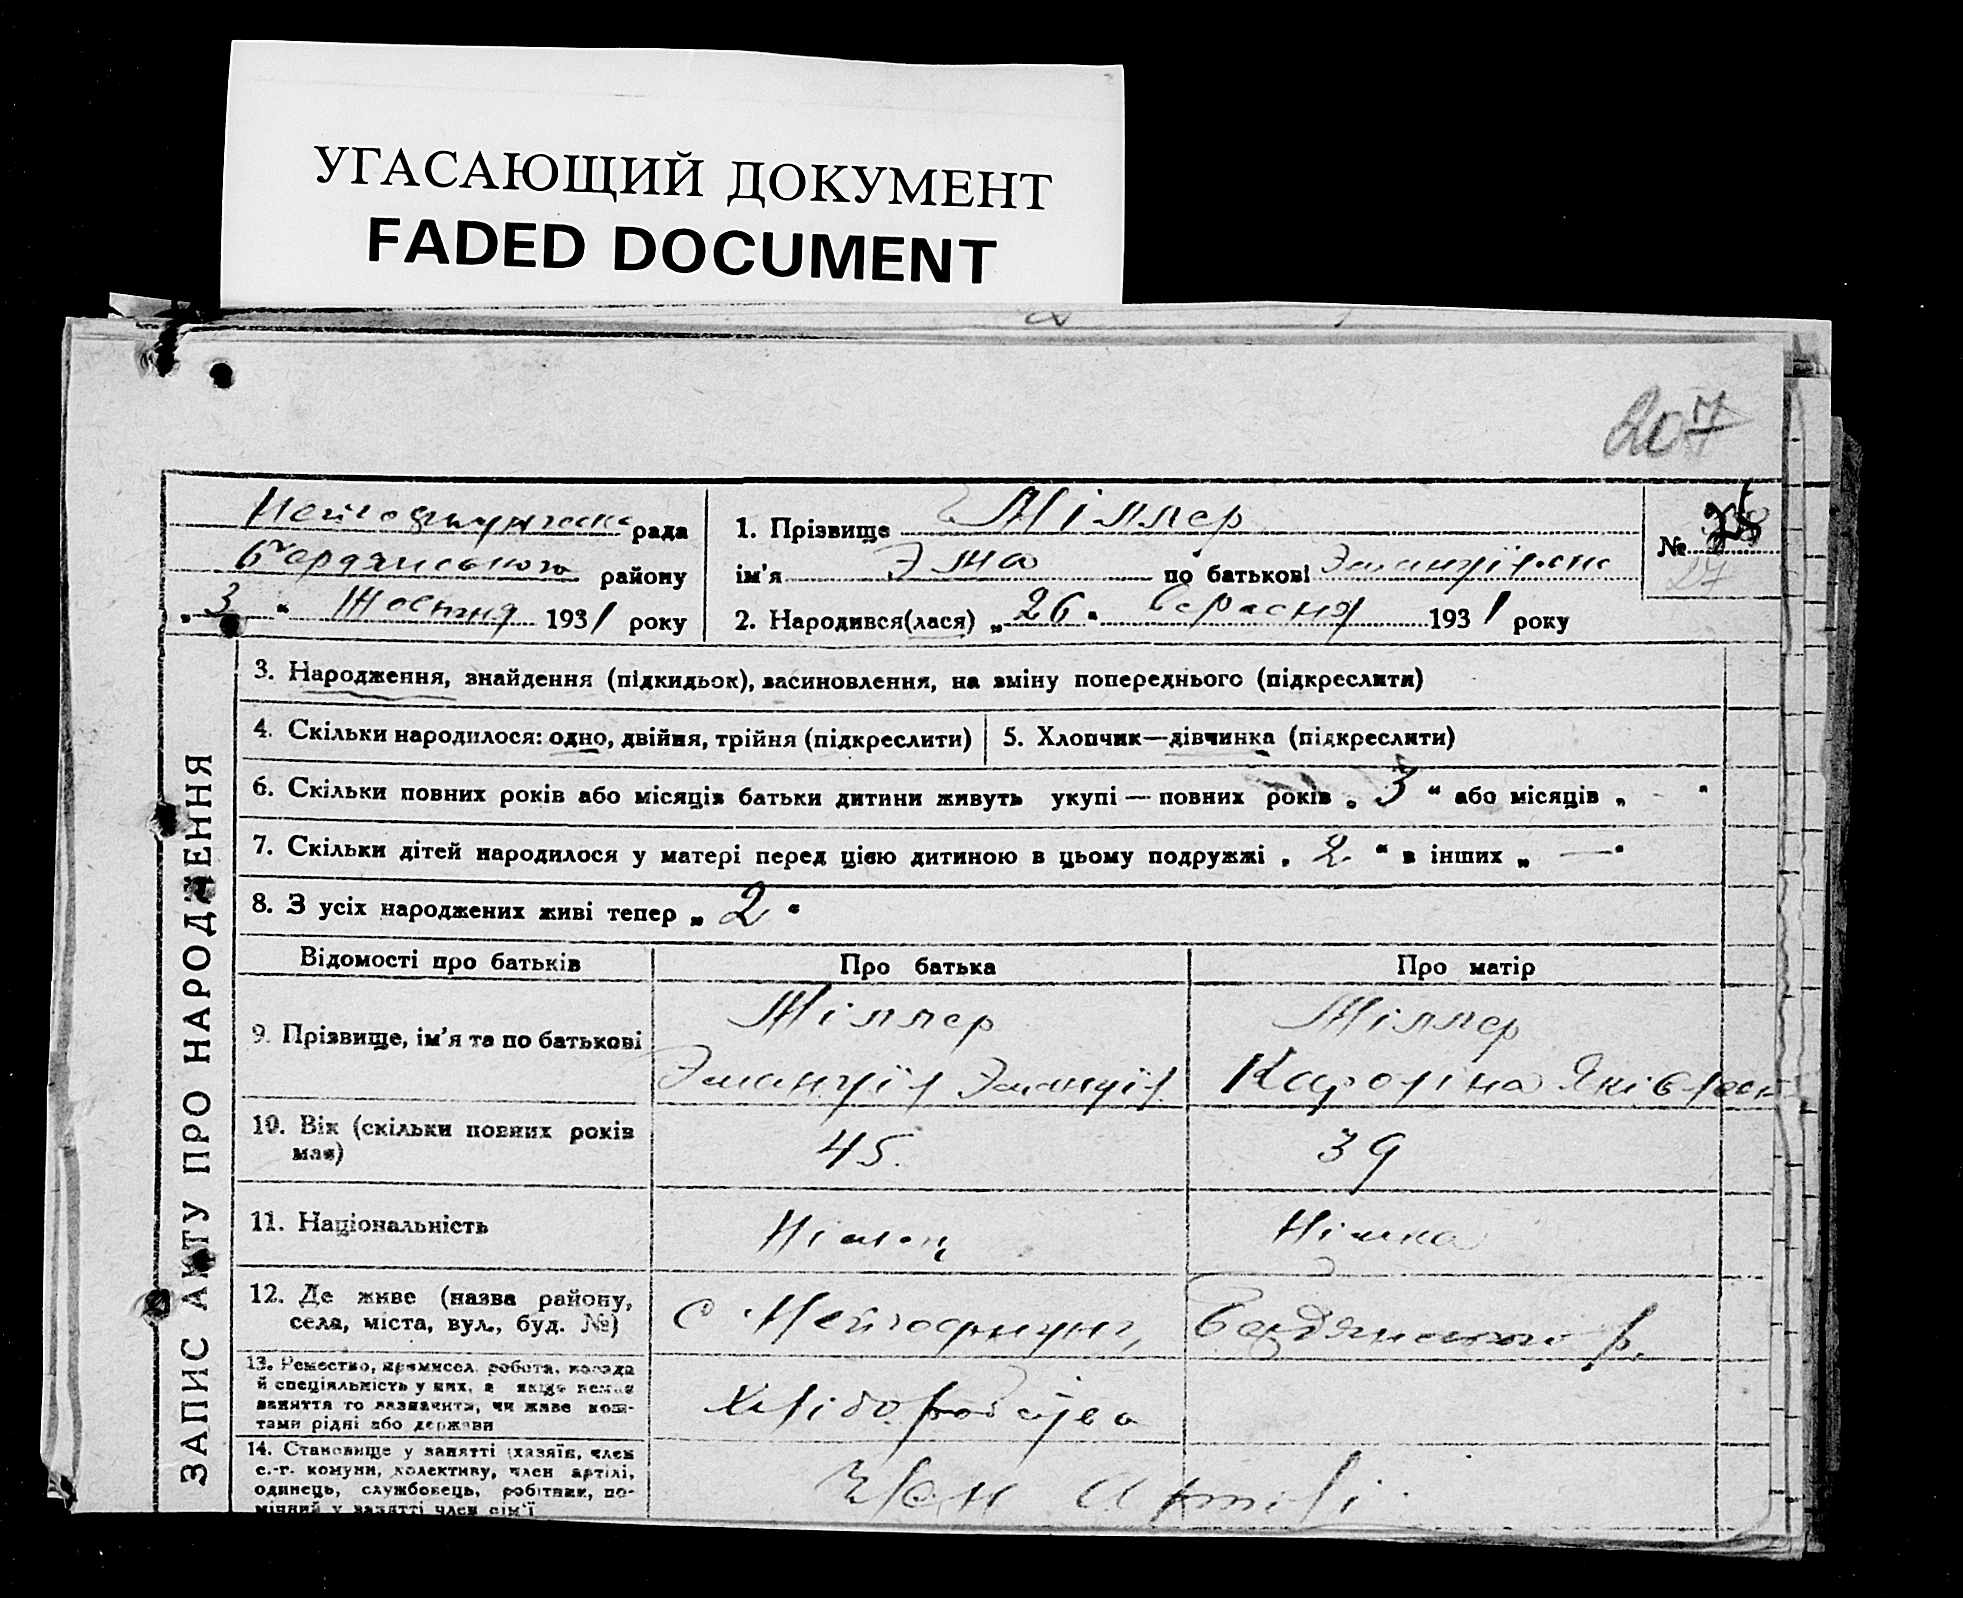 УГАСАЮЩИЙ ДОКУМЕНТ
FADED DOCUMENT
207
рада
Бердянського району
„ 3 “ Жовтня 1931 року
1. Прізвище Міллер
ім'я Эма по батькові
2. Народився(лася) „ 26 “ вересня 1931 року
№ 28
27
ЗАПИС АКТУ ПРО НАРОДЖЕННЯ
3. Народження, знайдення (підкидьок), засиновлення, на зміну попереднього (підкреслити)
4. Скільки народилося: одно, двійня, трійня (підкреслити)
5. Хлопчик—дівчинка (підкреслити)
6. Скільки повних років або місяців батьки дитини живуть укупі — повних років „ 3 “ або місяців „ - “
7. Скільки дітей народилося у матері перед цією дитиною в цьому подружжі „ 2 “ в інших „ — “
8. З усіх народжених живі тепер „ 2 “
Відомості про батьків
Про батька
Про матір
9. Прізвище, ім'я та по батькові
Міллер
Эмануїл Эмануїл
Міллер
Кароліна Яківлевн
10. Вік (скільки повних років
має)
45.
39
11. Національність
Німец
Німка
12. Де живе (назва району,
села, міста, вул., буд. №)
с. Нейгофнунг, Бердянського р.
13. Ремество, промисел, робота, посада
й спеціяльність у них, а якщо немає
заняття то зазначити, чи живе кош-
тами рідні або держави
14. Становище у занятті (хазяїн, член
с.-г. комуни, колективу, член артілі,
одинець, службовець, робітник, по-
мічний у занятті член сім'ї
член артілі